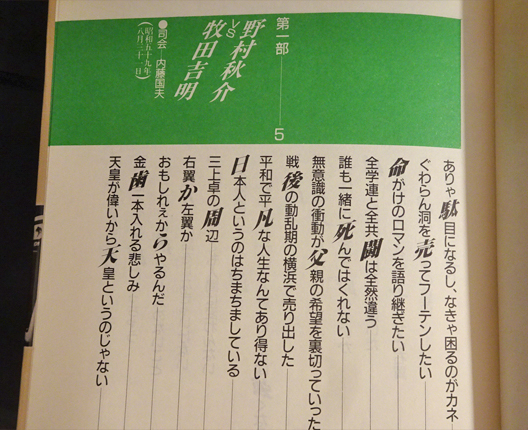 第一部────5
野村秋介
VS
牧田吉明
●司会─内藤国夫
(昭和五十九年
八月三十一日)
ありゃ駄目になるし、なきゃ困るのがカネ
ぐわらん洞を売ってフーテンしたい
命がけのロマンを語り継ぎたい
全学連と全共闘は全然違う
誰も一緒に死んではくれない
無意識の衝動が父親の希望を裏切っていった
戦後の動乱期の横浜で売り出した
平和で平凡な人生なんてあり得ない
日本人というのはちまちましている
三上卓の周辺
右翼か左翼か
おもしれぇからやるんだ
金歯一本入れる悲しみ
天皇が偉いから天皇というのじゃない